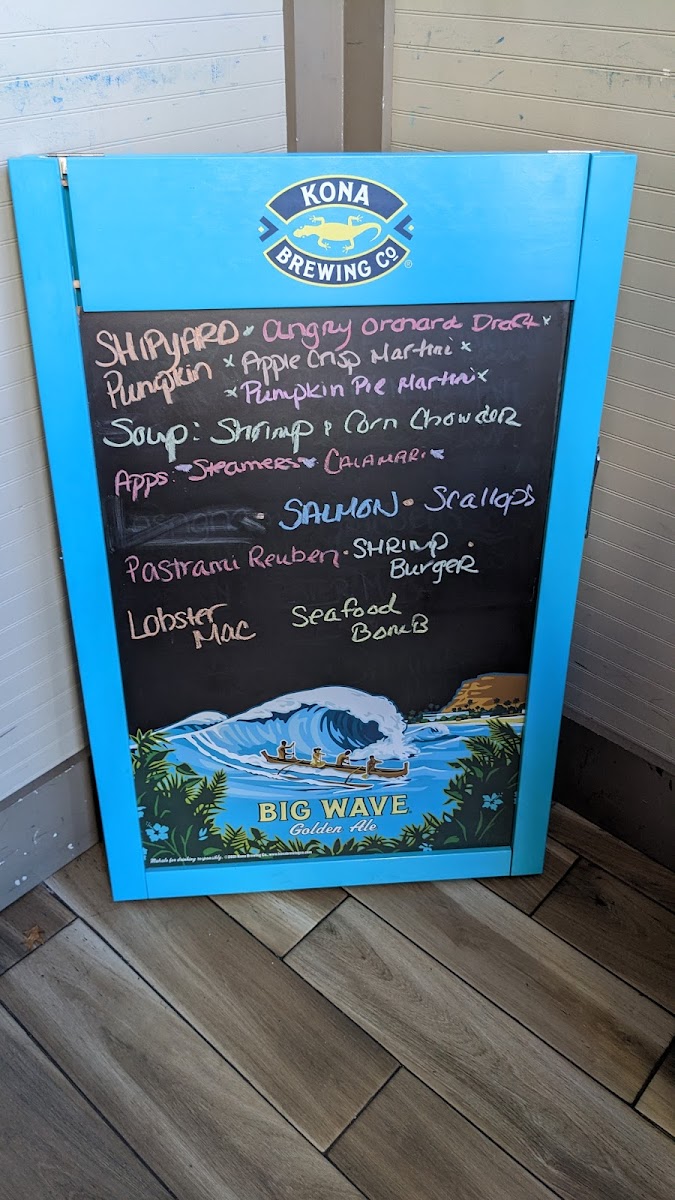 KONA
BREWING CO®
SHIPYARD * Angry Orchard Draft *
Pumpkin * Apple Crisp Martini *
* Pumpkin Pie Martini *
Soup: Shrimp & Corn Chowder
Apps: Steamers CALAMARI
SALMON • Scallops
Pastrami Reuben • SHRIMP •
Burger
Lobster Seafood
Mac BomB
BIG WAVE
Golden Ale